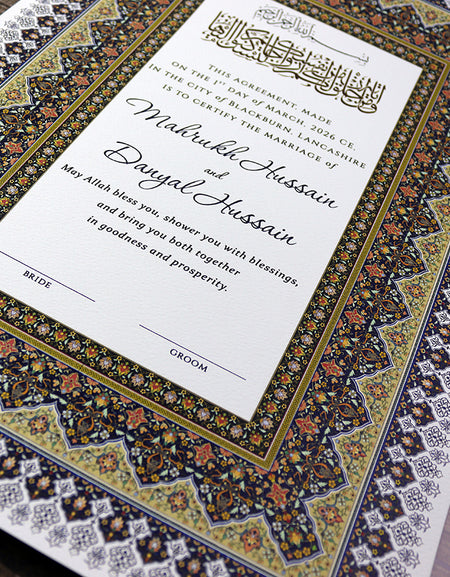 بسم الله الرحمن الرحيم
THIS AGREEMENT, MADE
ON THE 1ST DAY OF MARCH, 2026 CE.
IN THE CITY OF BLACKBURN, LANCASHIRE
IS TO CERTIFY THE MARRIAGE of
Mahrukh Hussain
and
Danyal Hussain
May Allah bless you, shower you with blessings,
and bring you both together
in goodness and prosperity.
BRIDE
GROOM